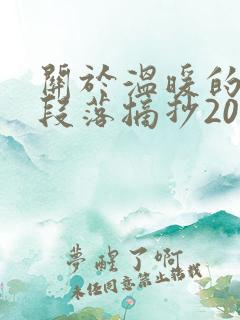 關於溫暖的
段落摘抄20
夢醒了啊
未經同意禁止搭載